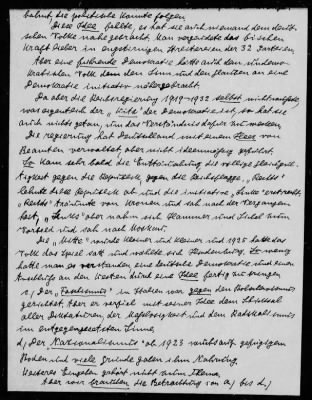 bahnt, die praktische Kannte folgen
Diese Idee fehlte, es hat sie auch niemand dem deut-
schen Volke nahe gebracht. Man vergeudete das bischen
Kraft lieber in engstirnigen Streitereien der 32 Parteien
Aber eine führende Demokratie hätte auch dem undemo-
kratischen Volk den Sinn und den Glauben an eine
Demokratie näher gebracht.
Da aber die Reichsregierung 1919-1932 selbst nicht wußte,
was eigentlich der "Witz" der Demokratie ist, so hat sie
auch nichts getan, um das Verständnis dafür zu wecken
Die Regierung hat Deutschland mit einem Heer von
Beamten verwaltet aber nicht ideenmäßig geführt.
So kam sehr bald die Enttäuschung die völlige Gleichgül-
tigkeit gegen die Republik, gegen die Reichsflagge. "Rechts"
lehnte die Republik ab und die initiative "Linke" erstarkte.
"Rechts" träumte von Kronen und sah nach der Vergangen-
heit, "Links" aber nahm sich Hammer und Sichel zum
Vorbild und sah nach Moskau.
Die "Mitte" wurde kleiner und kleiner und 1925 hatte das
Volk das Spiel satt und wählte sich Hindenburg. So wenig
hatte man es verstanden eine deutsche Demokratie und einen
Anschluß an den Westen durch eine Idee fertig zu bringen
c) Der "Faschismus" in Italien war gegen den Bolschewismus
gerichtet. Aber er verfiel mit seiner Idee dem Schicksal
aller Diktaturen der Maßlosigkeit und dem Radikalismus
im entgegengesetzten Sinne.
d) Der Nationalismus ab 1923 wuchs auf gepflügtem
Boden und viele Gründe gaben ihm Nahrung
Weiteres Eingehen gehört nicht zum Thema.
Aber wir brauchen die Betrachtung von a) bis d)